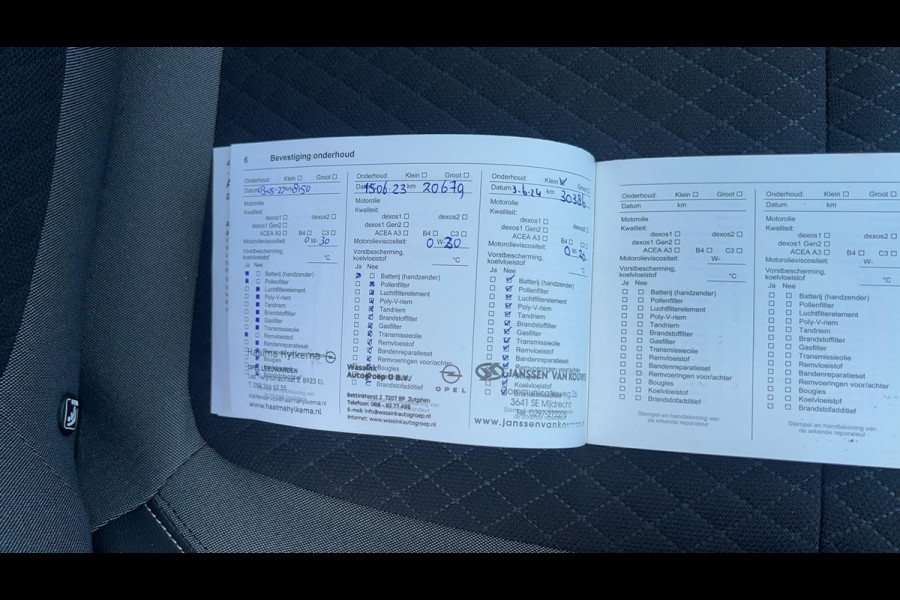 6 Bevestiging onderhoud
Onderhoud: Klein Groot
Datum 03-05-22 km 8150
Motorolie
Kwaliteit:
dexos1 dexos2
dexos1 Gen2
ACEA A3 B4 C3
Motorolieviscositeit: 0 W- 30
Vorstbescherming,
koelvloeistof °C
Ja Nee
Batterij (handzender)
Pollenfilter
Luchtfilterelement
Poly-V-riem
Tandriem
Brandstoffilter
Gasfilter
Transmissieolie
Remvloeistof
Bandenreparatieset
Haaima Hylkema
Bougies
LEEUWARDEN
8923 EL
www.haaimahylkema.nl
Onderhoud: Klein Groot
Datum 15 06-23 km 20679
Motorolie
Kwaliteit:
dexos1 dexos2
dexos1 Gen2
ACEA A3 B4 C3
Motorolieviscositeit: 0 W- 20
Vorstbescherming,
koelvloeistof °C
Ja Nee
Batterij (handzender)
Pollenfilter
Luchtfilterelement
Poly-V-riem
Tandriem
Brandstoffilter
Gasfilter
Transmissieolie
Remvloeistof
Bandenreparatieset
Remvoeringen voor/achter
Wassink Bougies
Autogroep B.V.
OPEL
Brandstofadditief
Bettinkhorst 2 7207 BP Zutphen
E-mail: info@wassinkautogroep.nl
Internet: www.wassinkautogroep.nl
Onderhoud: Klein Groot
Datum 3-6-24 km 30386
Motorolie
Kwaliteit:
dexos1
dexos1 Gen2
ACEA A3 B4
Motorolieviscositeit: 0 W-
Vorstbescherming,
koelvloeistof
Ja Nee
Batterij (handzender)
Pollenfilter
Luchtfilterelement
Poly-V-riem
Tandriem
Brandstoffilter
Gasfilter
Transmissieolie
Remvloeistof
Bandenreparatieset
JANSSEN VAN KOUWEN
Koelvloeistof
Brandstofadditief
3641 SE Mijdrecht
Onderhoud: Klein Groot
Datum km
Motorolie
Kwaliteit:
dexos1 dexos2
dexos1 Gen2
ACEA A3 B4 C3
Motorolieviscositeit: W-
Vorstbescherming,
koelvloeistof °C
Ja Nee
Batterij (handzender)
Pollenfilter
Luchtfilterelement
Poly-V-riem
Tandriem
Brandstoffilter
Gasfilter
Transmissieolie
Remvloeistof
Bandenreparatieset
Remvoeringen voor/achter
Bougies
Koelvloeistof
Brandstofadditief
Stempel en handtekening van
de erkende reparateur
Onderhoud: Klein Groot
Datum km
Motorolie
Kwaliteit:
dexos1 dexos2
dexos1 Gen2
ACEA A3 B4 C3
Motorolieviscositeit: W-
Vorstbescherming,
koelvloeistof °C
Ja Nee
Batterij (handzender)
Pollenfilter
Luchtfilterelement
Poly-V-riem
Tandriem
Brandstoffilter
Gasfilter
Transmissieolie
Remvloeistof
Bandenreparatieset
Remvoeringen voor/achter
Bougies
Koelvloeistof
Brandstofadditief
Stempel en handtekening van
de erkende reparateur